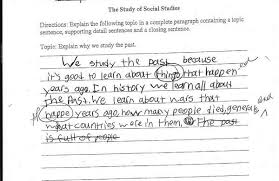 The Study of Social Studies
Directions: Explain the following topic in a complete paragraph containing a topic
sentence, supporting detail sentences and a closing sentence.
Topic: Explain why we study the past.
We study the past because
it's good to learn about things that happen
years ago. In history we learn all about
the Past. We learn about wars that
happe years ago, how many people died, generals and
what countries were in them. The past
is full of